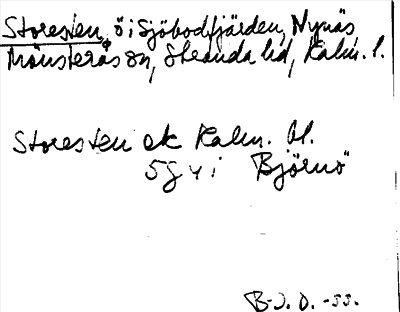 Storesten, ö i Sjöbodfjärden, Nynäs,
Mönsterås sn, Stranda hd, Kalm. l.
Storesten ek Kalm. bl.
5g4i Björnö
B-J. O. -33.